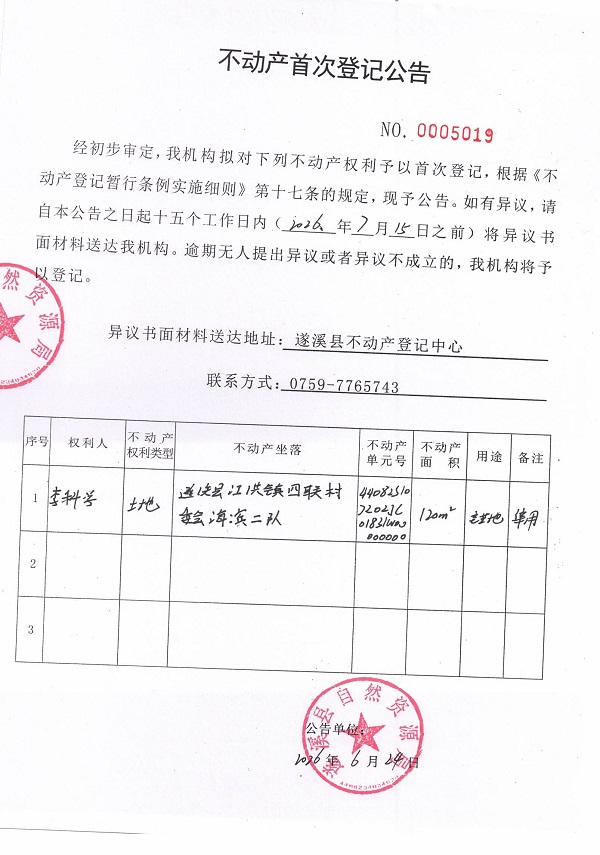 不动产首次登记公告
NO. 0005019
经初步审定，我机构拟对下列不动产权利予以首次登记，根据《不
动产登记暂行条例实施细则》第十七条的规定，现予公告。如有异议，请
自本公告之日起十五个工作日内（2026年7月15日之前）将异议书
面材料送达我机构。逾期无人提出异议或者异议不成立的，我机构将予
以登记。
然资源局
异议书面材料送达地址：遂溪县不动产登记中心
联系方式：0759-7765743
序号 权利人 不动产权利类型 不动产坐落 不动产单元号 不动产面积 用途 备注
1 李科 土地 遂溪县江洪镇四联村委会海滨二队 120m²
2
3
遂溪县自然资源局
公告单位：
2026年6月24日